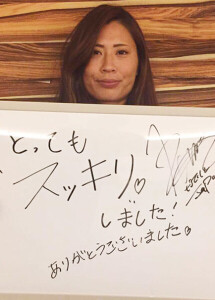 とっても
スッキリ♡
しました!
ありがとうございました。